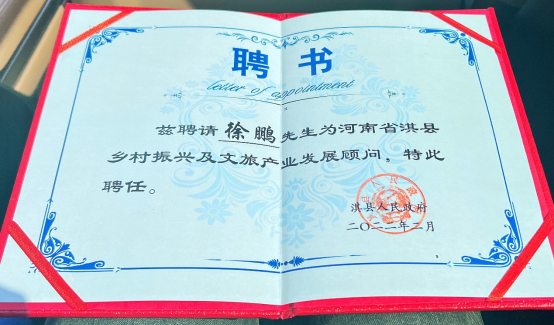 聘书
letter of appointment
兹聘请 徐鹏 先生为河南省淇县
乡村振兴及文旅产业发展顾问，特此
聘任。
淇县人民政府
二〇二二年二月